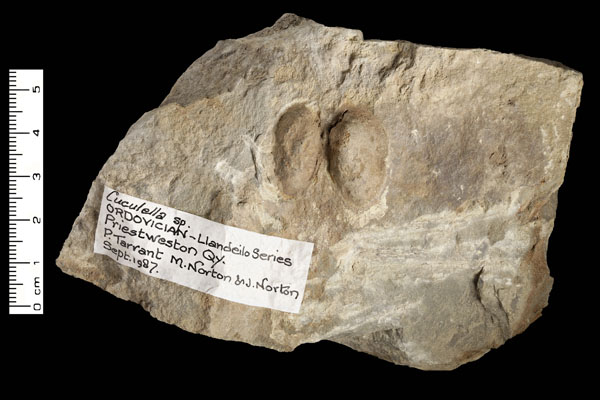 Cuculella sp.
ORDOVICIAN - Llandeilo Series
Priestweston Qy.
P. Tarrant M. Norton & J. Norton
Sept. 1987.
5
4
3
2
1
0 cm